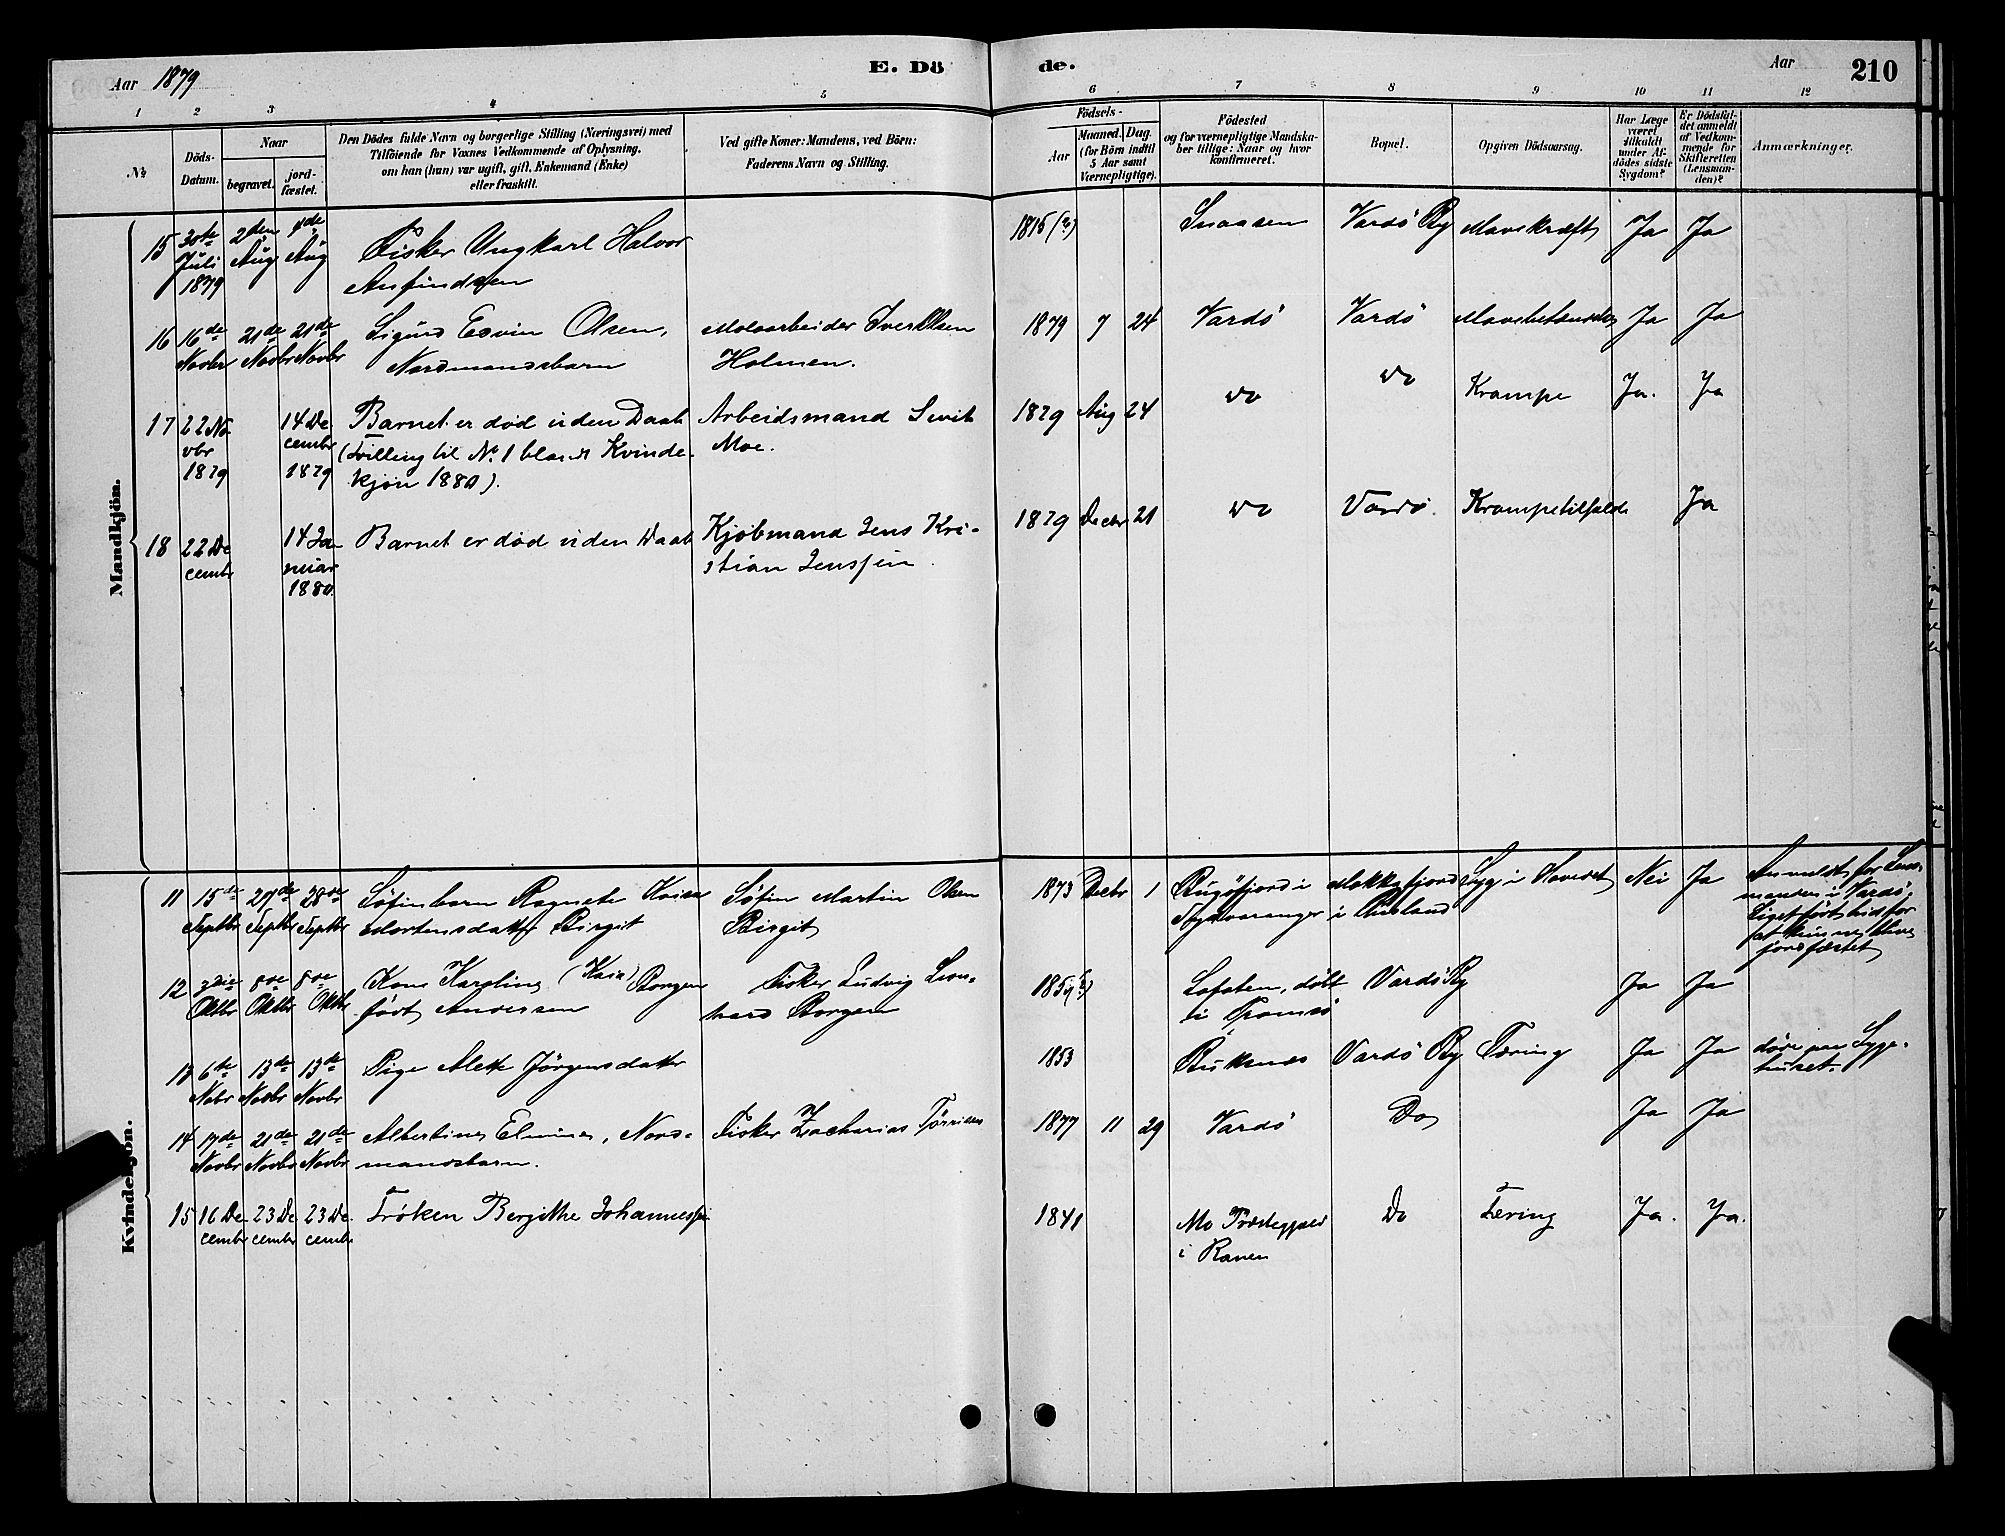 Aar 1879
E. Dö
de.
Aar
210
1 2 3 4 5 6 7 8 9 10 11 12
№
Döds-
Datum.
Naar
begravet.
jord-
fæstet.
Den Dödes fulde Navn og borgerlige Stilling (Næringsvei) med
Tilföiende for Voxnes Vedkommende af Oplysning.
om han (hun) var ugift, gift, Enkemand (Enke)
eller fraskilt.
Ved gifte Koner: Mandens, ved Börn:
Faderens Navn og Stilling.
Födsels-
Aar
Maaned. Dag.
(for Börn indtil
5 Aar samt
Værnepligtige).
Födested
og for værnepligtige Mandska-
ber tillige: Naar og hvor
konfirmeret.
Bopæl.
Opgiven Dödsaarsag.
Har Læge
været
tilkaldt
under Af-
dödes sidste
Sygdom?
Er Dödsfal-
det anmeldt
af Vedkom-
mende for
Skifteretten
(Lensman-
den)?
Anmærkninger.
Mandkjön.
15 30te Juli 1879 2den Aug Aug Fisker Ungkarl Halvor
Anfindsen
1815 Snaasen Vardö By Mavekræft Ja Ja
16 16de Novbr 21de Novbr 21de Novbr Sigurd Edvin Olsen,
Nordmandsbarn
Moloarbeider Iver Olsen
Holmen.
1879 7 24 Vardö Vardö Ja Ja
17 22 No
vbr
1879
14 De
cembr
1879
Barnet er död uden Daab
(Tvilling til No 1 blandt Kvinde-
kjön 1880).
Arbeidsmand Sevit
Moe.
1879 Aug 24 do do Krampe Ja. Ja
18 22 De
cembr
14 Ja
nuar
1880
Barnet er död uden Daab
Kjöbmand Jens Kri-
stian Jenssen.
1879 Decbr 21 do Vardö. Krampetilfælde Ja
Kvindekjön.
11 15de Septbr 27de Septbr 28de Septbr Söfinbarn Ragnete Kaisa
Mortensdatter Birgit
Söfin Martin Olsen
Birgit
1873 Decbr 1 Bugöfjord i
Sydvaranger
Mokkefjord
i Rusland
Syg i Hovedet Nei Ja Anmeldt for Lens-
manden i Vardö,
Liget fört hid for
at kunne blive
jordfæstet
12 3die Oktbr 8de Oktbr 8de Oktbr Kone Karoline (Kaia) Borgen
född Andersen
Fisker Ludvig Leon-
hard Borgen
Lofoten, döbt
i Tromsö
Vardö By Ja Ja
13 6te Nobr 13de Novbr 13de Novbr Pige Alette Jörgensdatter
1853 Buksnes Vardö By Tæring Ja Ja döde paa Syge-
huset.
14 17de Novbr 21de Novbr 21de Novbr Albertine Elmine, Nord-
mandsbarn.
Fisker Zacharias Törrisen
1877 11 29 Vardö Do Ja Ja
15 16 De
cembr
23 De
cembr
23 De
cembr
Fröken Bergithe Johannessen
1841 Mo Præstegjæld
i Ranen
Do Tæring Ja. Ja.